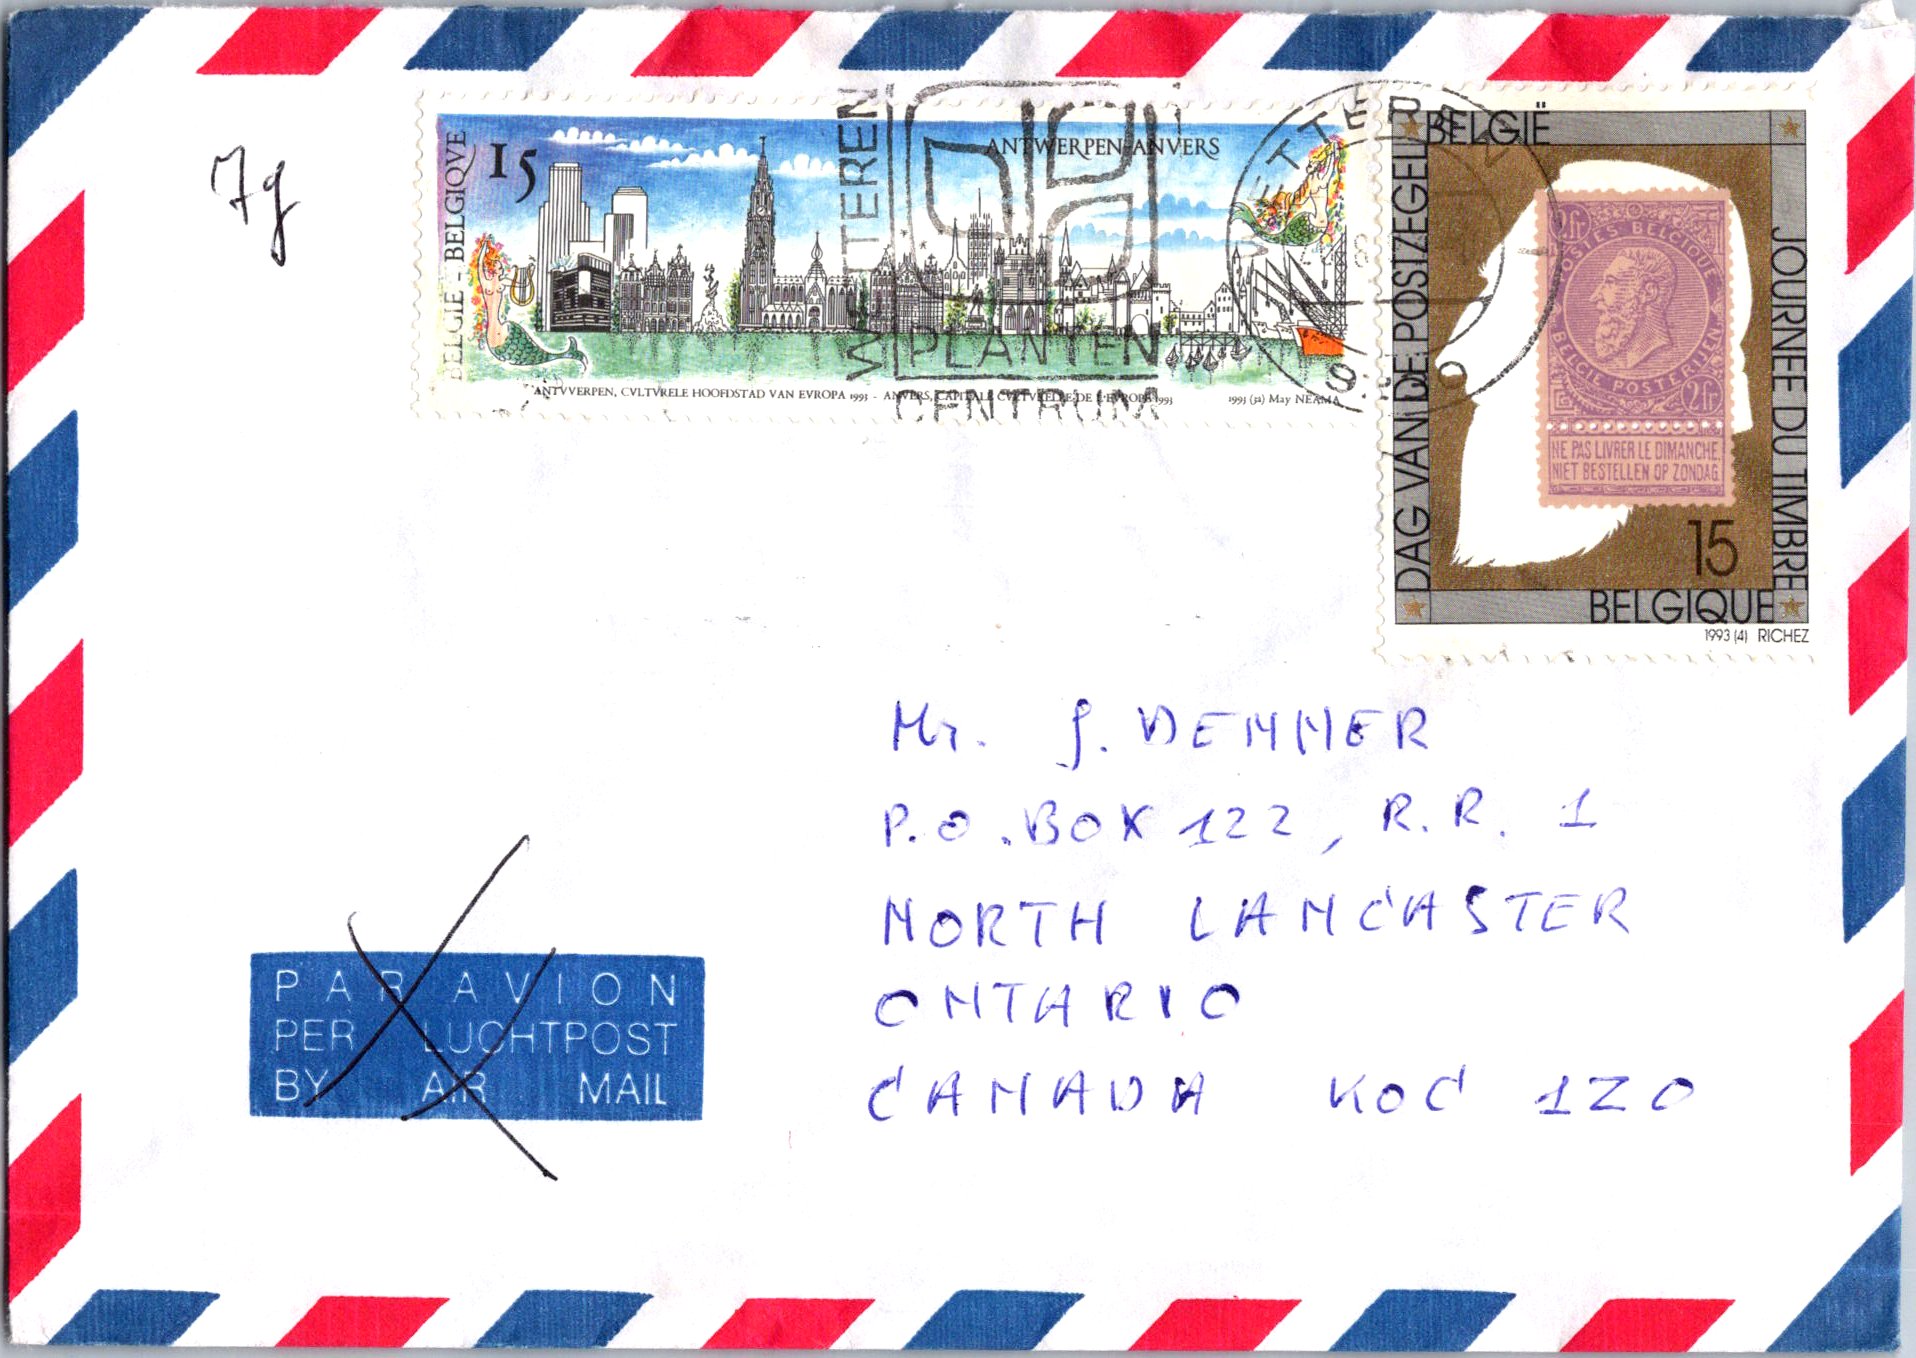 7g
BELGIË - BELGIQVE
15
ANTWERPEN-ANVERS
ANTVVERPEN, CVLTVRELE HOOFDSTAD VAN EVROPA 1993 - ANVERS, CAPITALE CVLTVRELLE DE L'EVROPE 1993
1993 (3a) May NEAMA
WETTEREN
PLANTEN
CENTRUM
WETTEREN
BELGIË
DAG VAN DE POSTZEGEL
JOURNEE DU TIMBRE
2fr
POSTES BELGIQUE
BELGIE POSTERIJEN
2fr
NE PAS LIVRER LE DIMANCHE
NIET BESTELLEN OP ZONDAG
15
BELGIQUE
1993 (4) RICHEZ
Mr. J. DEMMER
P.O. BOX 122, R.R. 1
NORTH LANCASTER
ONTARIO
CANADA KOC 1ZO
PAR AVION
PER LUCHTPOST
BY AIR MAIL